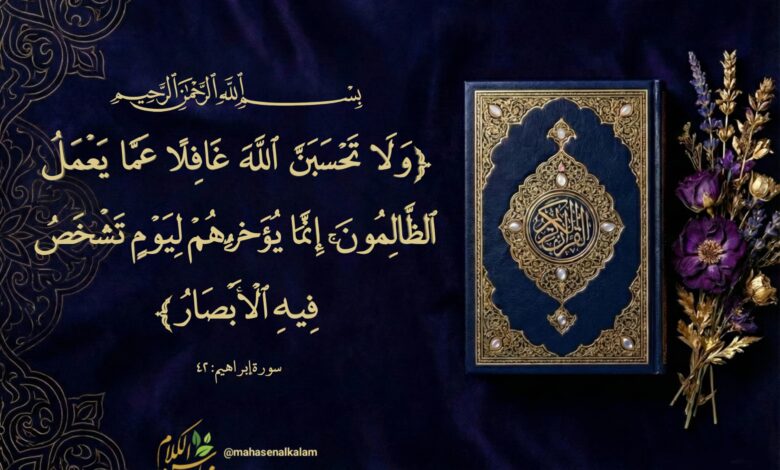 بِسْمِ ٱللَّهِ ٱلرَّحْمَٰنِ ٱلرَّحِيمِ
﴿وَلَا تَحْسَبَنَّ ٱللَّهَ غَافِلًا عَمَّا يَعْمَلُ
ٱلظَّالِمُونَ ۚ إِنَّمَا يُؤَخِّرُهُمْ لِيَوْمٍ تَشْخَصُ
فِيهِ ٱلْأَبْصَارُ﴾
سورة إبراهيم: ٤٢
القرآن الكريم
الكلام
@mahasenalkalam